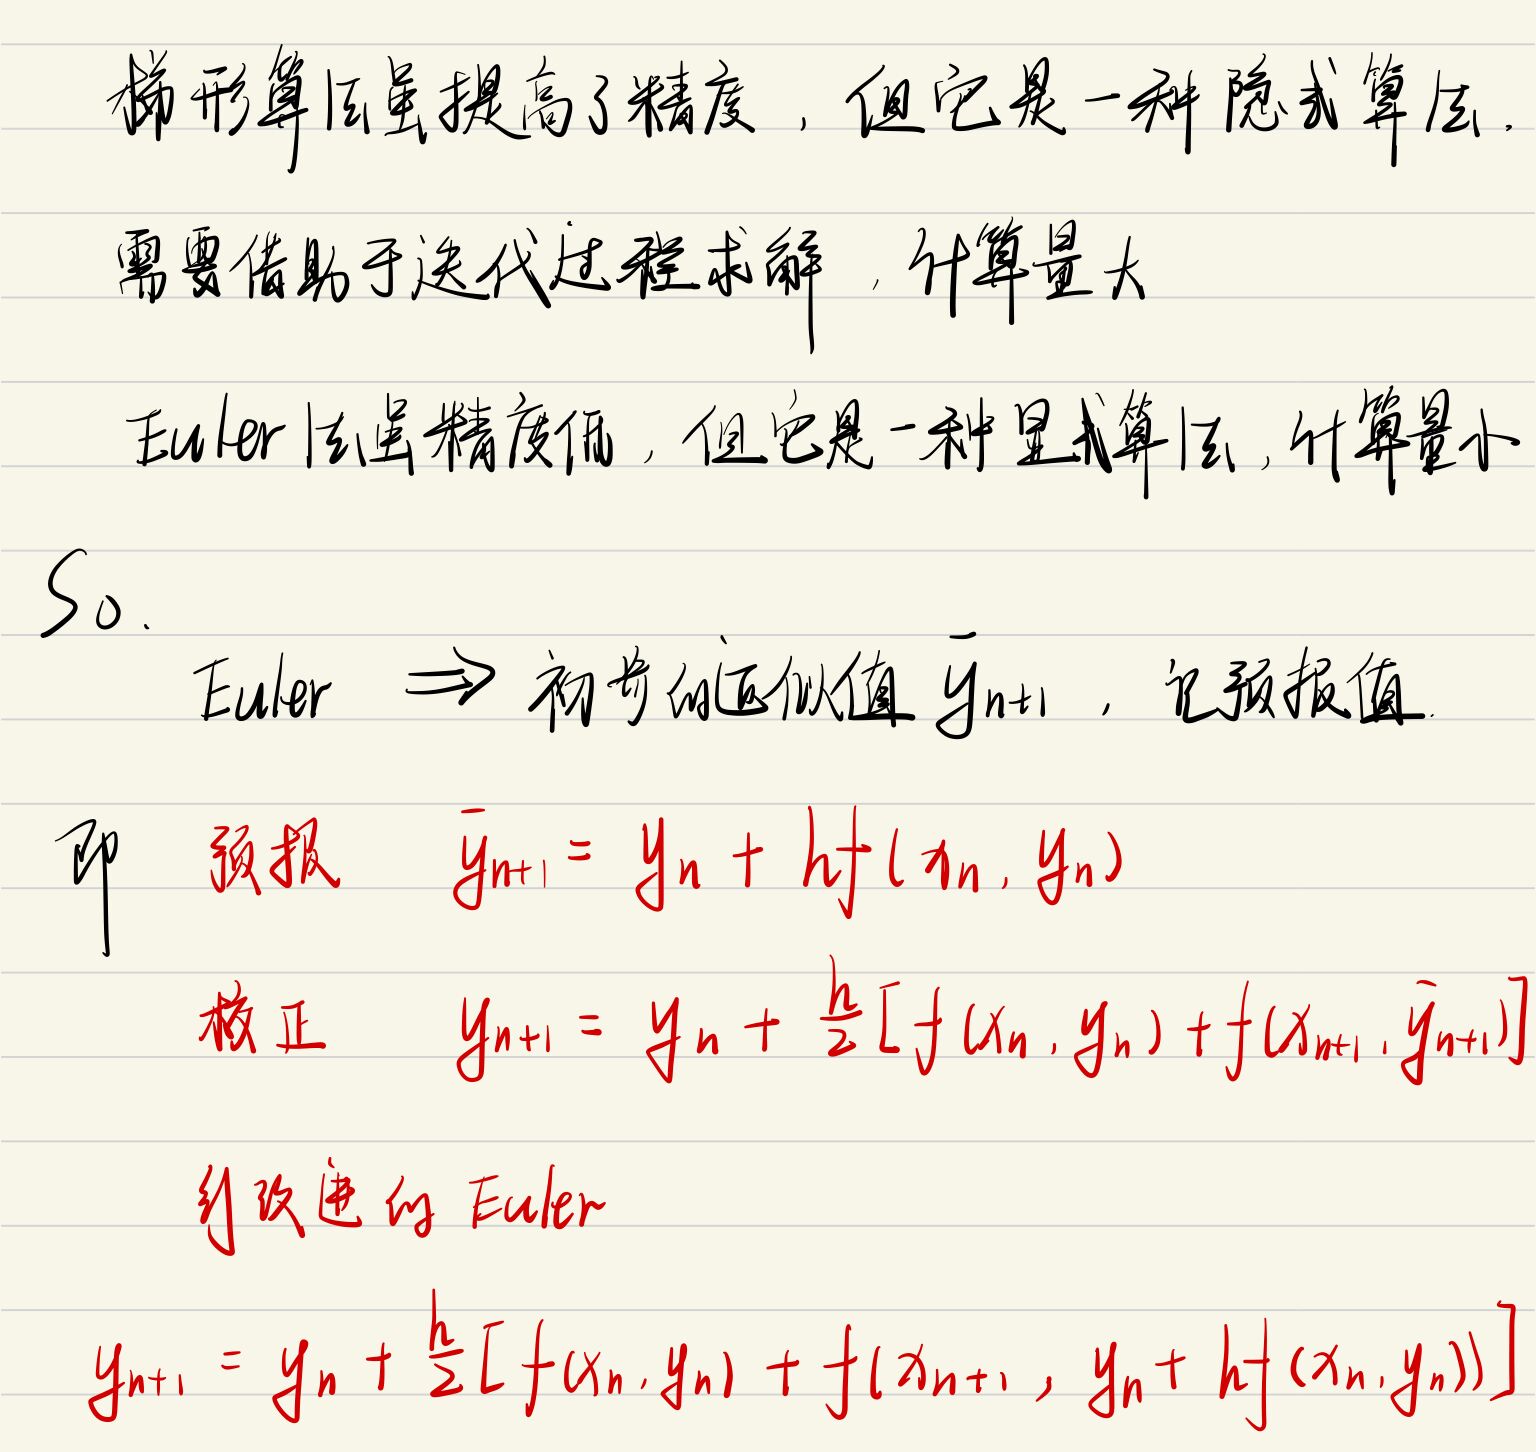 梯形算法虽提高了精度，但它是一种隐式算法.
需要借助于迭代过程求解，计算量大
Euler法虽精度低，但它是一种显式算法，计算量小
So.
Euler ⇒ 初步的近似值 ȳₙ₊₁，记预报值.
即 预报 ȳₙ₊₁ = yₙ + hf(xₙ, yₙ)
校正 yₙ₊₁ = yₙ + h/2 [f(xₙ, yₙ) + f(xₙ₊₁, ȳₙ₊₁)]
到改进的 Euler
yₙ₊₁ = yₙ + h/2 [f(xₙ, yₙ) + f(xₙ₊₁, yₙ + hf(xₙ, yₙ))]